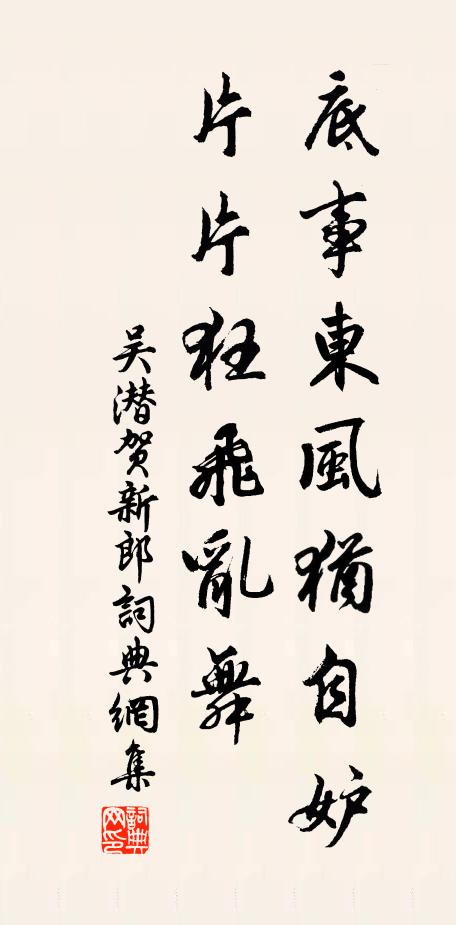 底事東風猶自妒
片片狂飛亂舞
吴潜贺新郎詞典網集
詞典網印